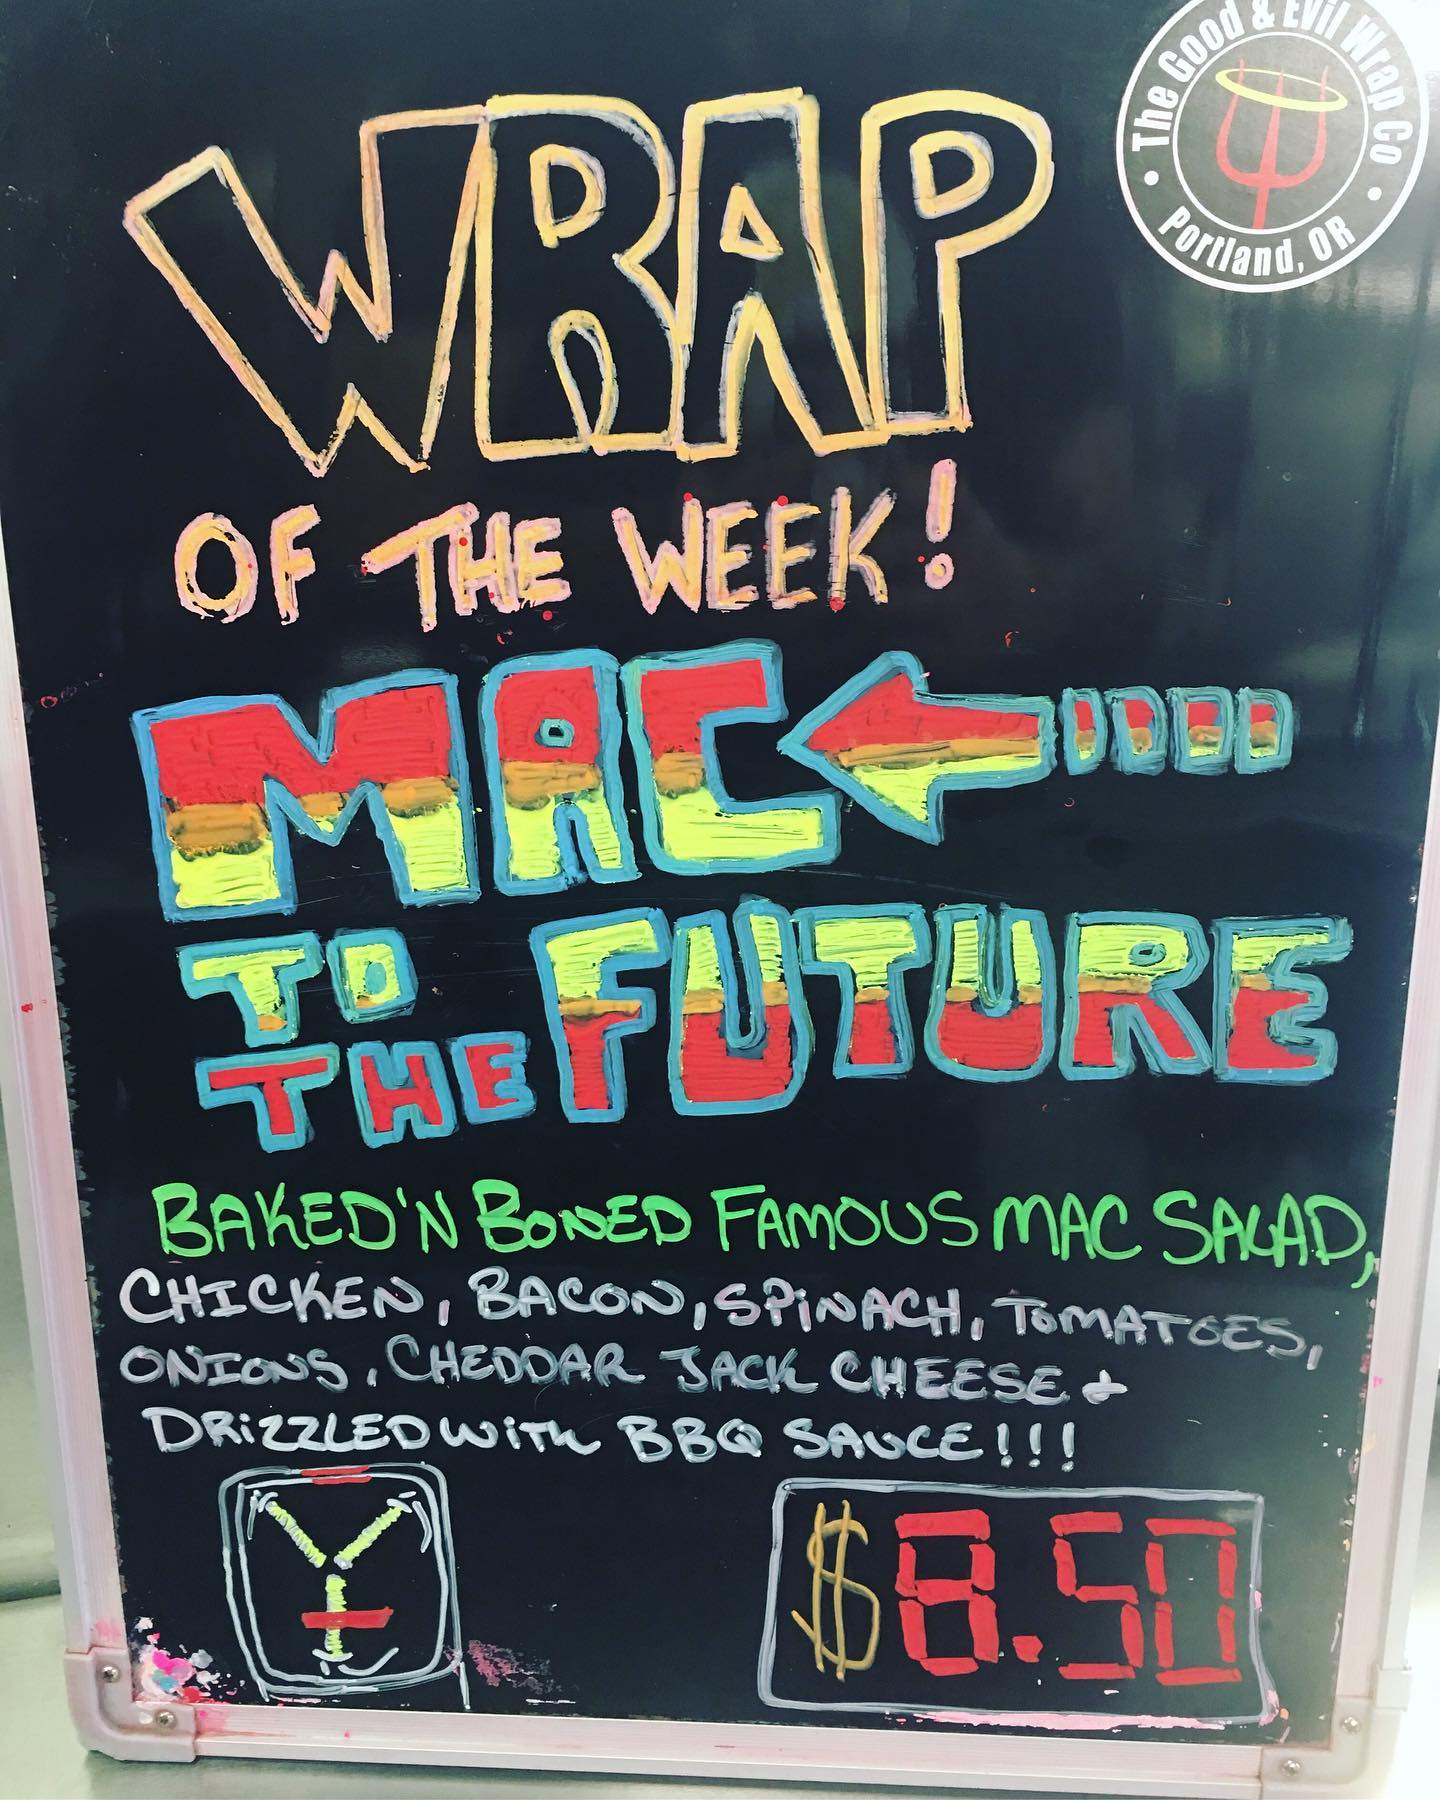 The Good & Evil Wrap Co
Portland, OR
WRAP
OF THE WEEK!
MAC
TO
THE FUTURE
BAKED'N BONED FAMOUS MAC SALAD,
CHICKEN, BACON, SPINACH, TOMATOES,
ONIONS, CHEDDAR JACK CHEESE &
DRIZZLED WITH BBQ SAUCE!!!
$8.50